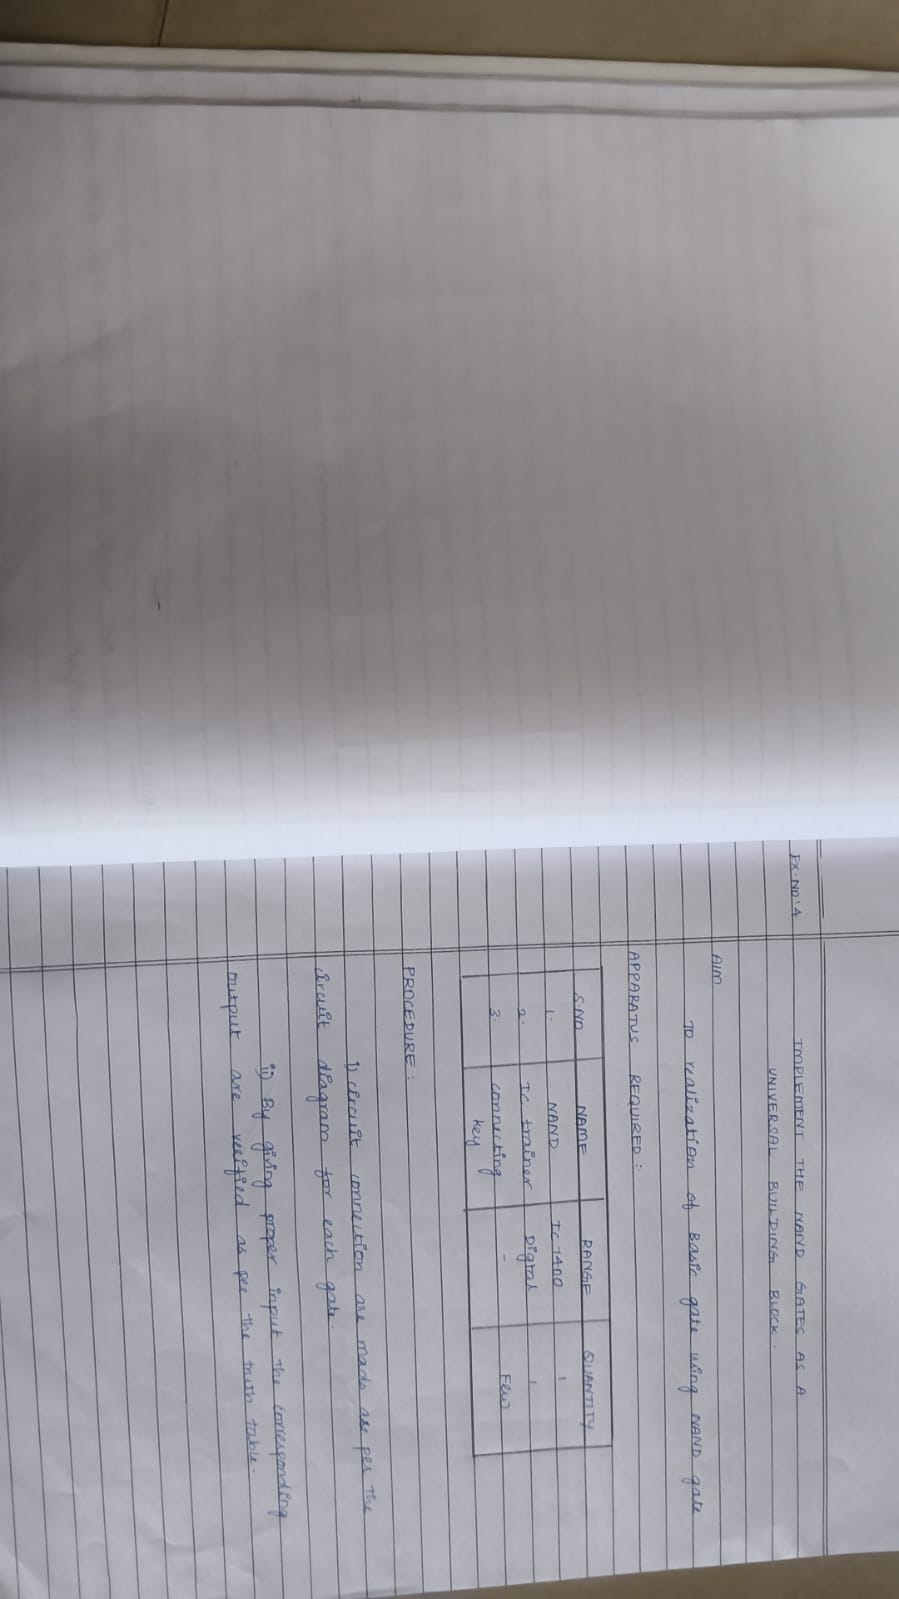 Ex-No:4
IMPLEMENT THE NAND GATES AS A
UNIVERSAL BUILDING BLOCK.
AIM
To realization of Basic gate using NAND gate
APPARATUS REQUIRED :
S.NO NAME RANGE QUANTITY
1. NAND IC 7400 1
2. IC trainer Digital 1
3. connecting key - Few
PROCEDURE :
i) circuit connection are made as per the
circuit diagram for each gate.
ii) By giving proper input the corresponding
output are verified as per the truth table.